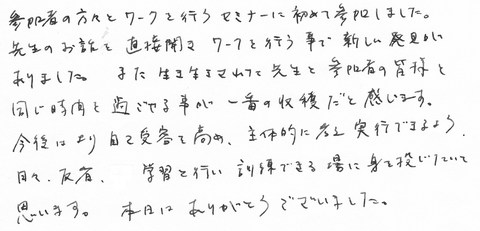 参加者の方々とワークを行うセミナーに初めて参加しました。
先生のお話を直接聞き ワークを行う事で新しい発見が
ありました。 また 生き生きされてる先生と参加者の皆様と
同じ時間を過ごせる事が 一番の収穫だと感じます。
今後はより自己受容を高め、主体的に考え実行できるよう、
日々、反省、 学習を行い 訓練できる場に身を投じたいと
思います。 本日は ありがとうございました。